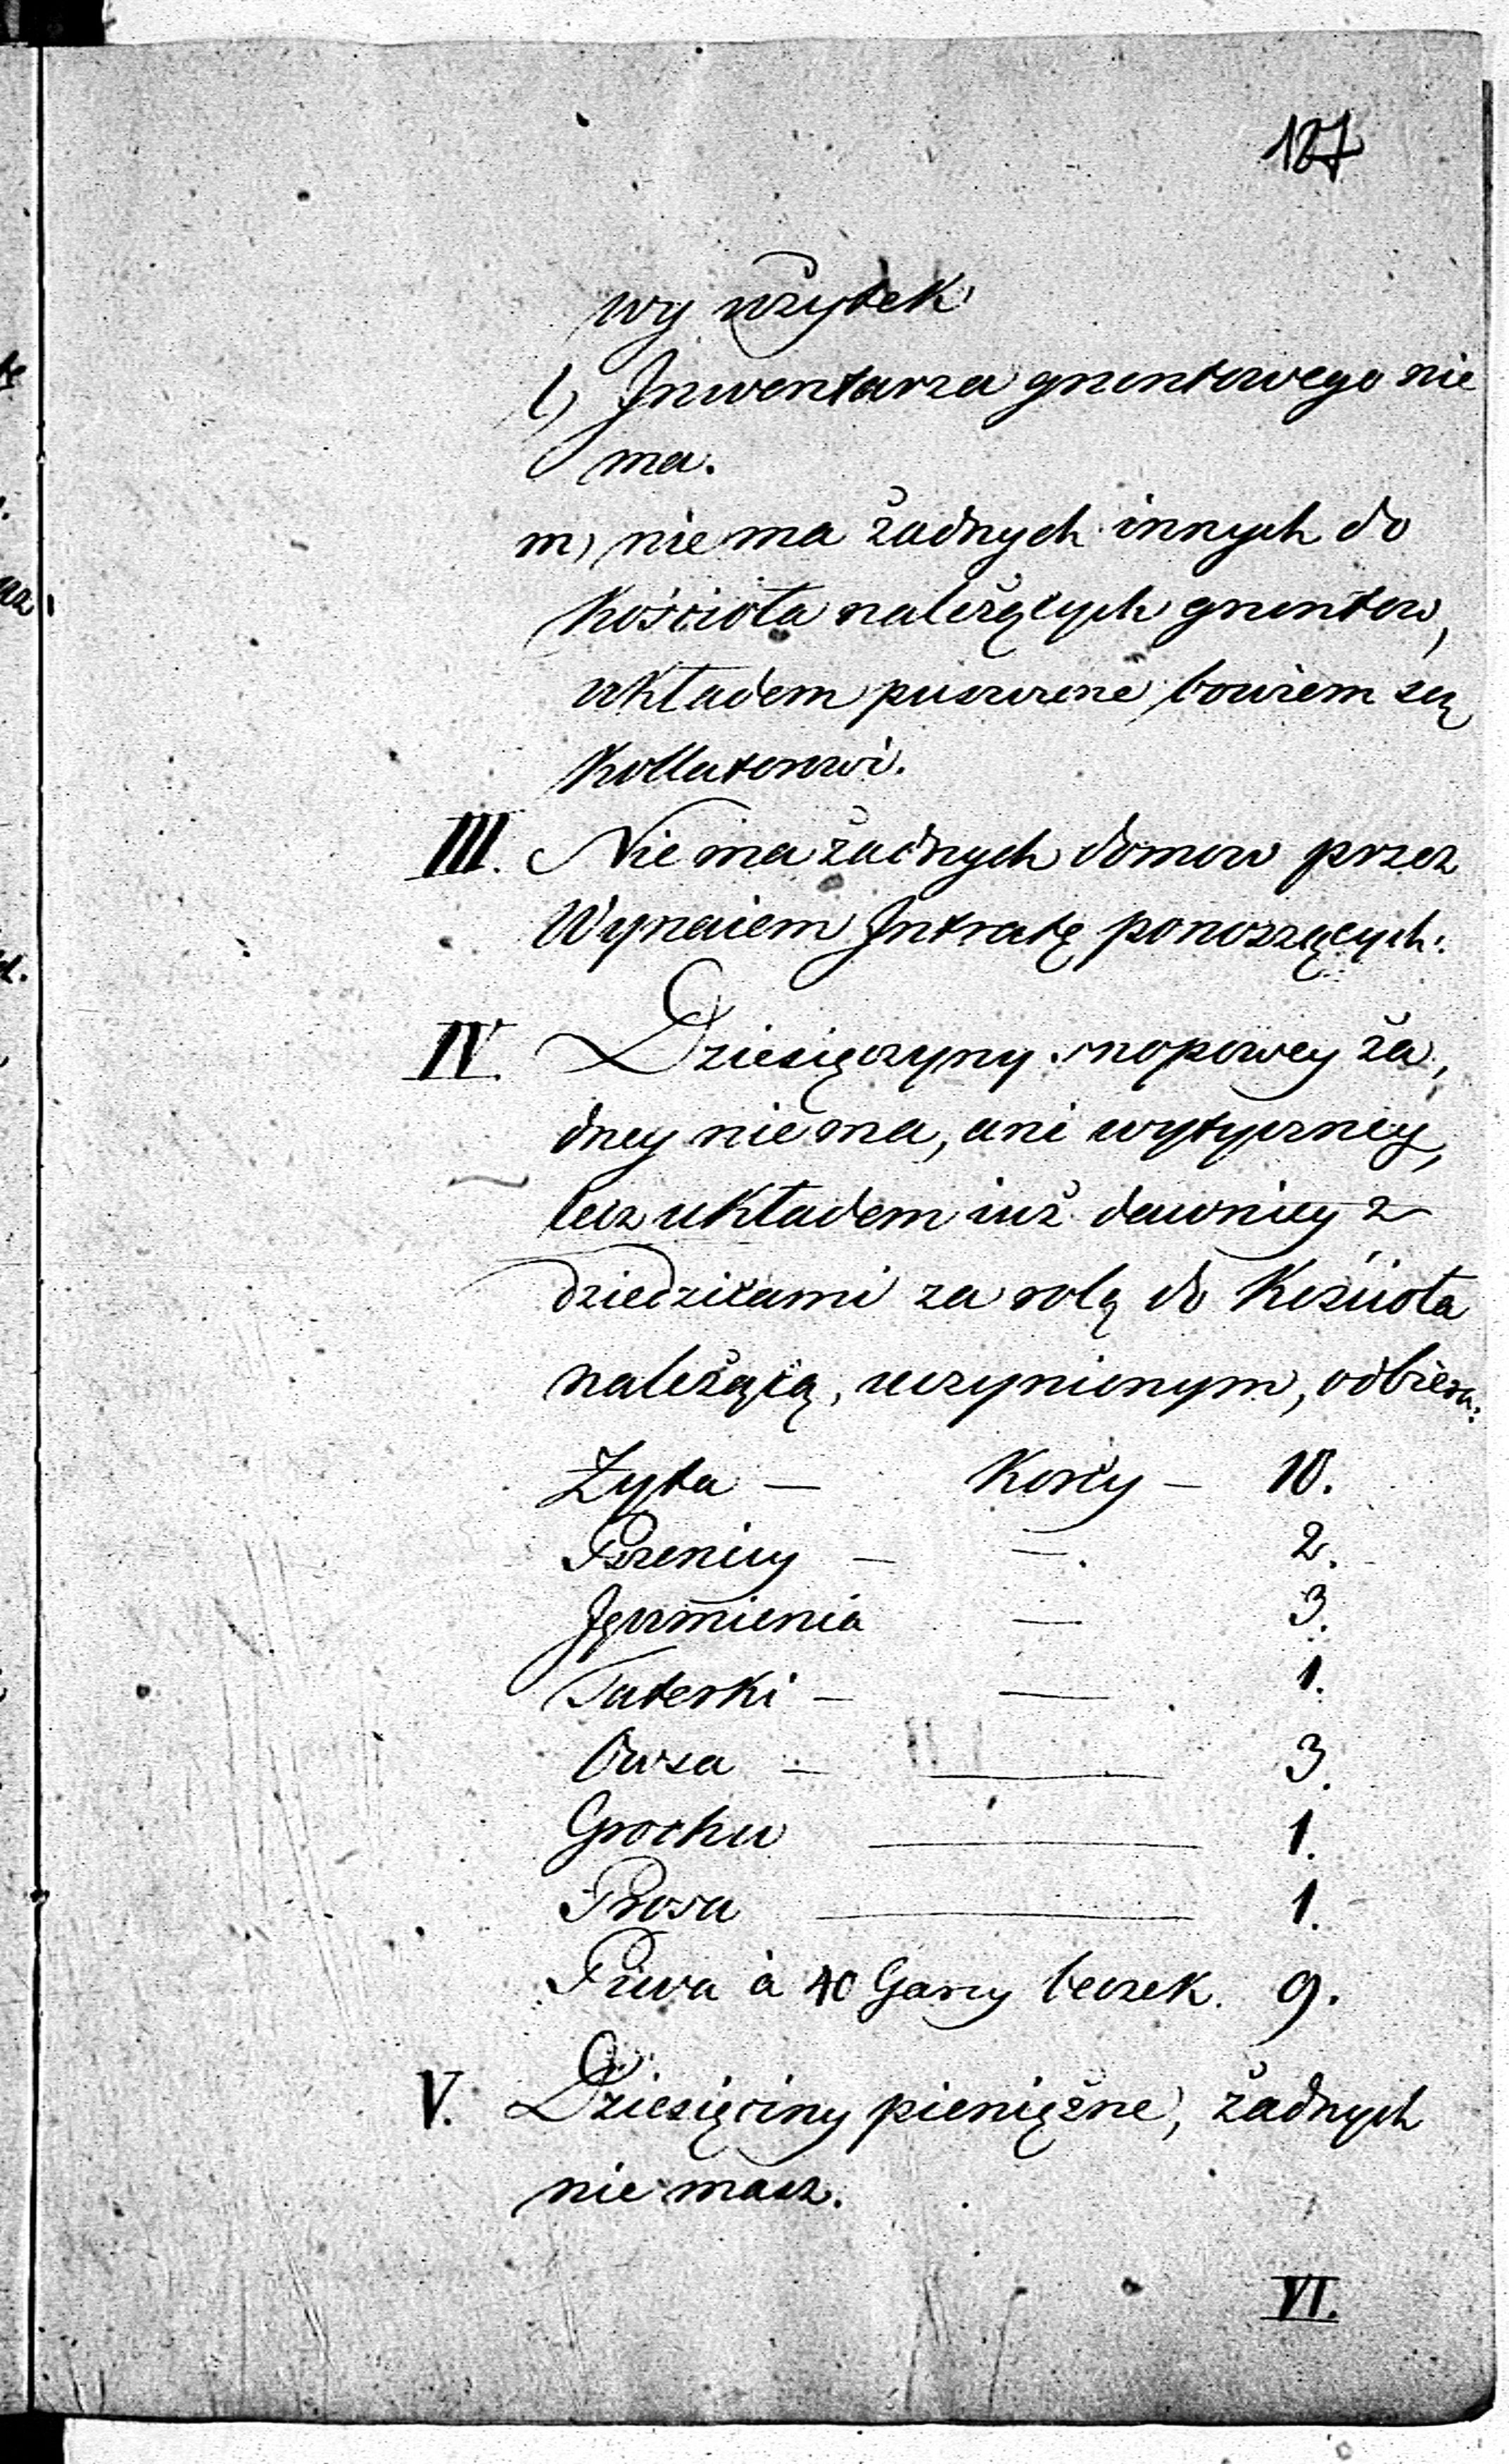 127
wy użytek
l) Inwentarza gruntowego nie
ma.
m) nie ma żadnych innych do
Kościoła należących gruntow,
układem puszczene bowiem są
Kollatorowi.
III. Nie ma żadnych domow przez
Wynaiem Intratę ponoszących.
IV. Dziesięczyny snopowey ża,
dney nie ma, ani wytyczney,
lecz układem iuż dawniey z
dziedzicami za rolą do Kościoła
należącą, uczynionym, odbiera:
Żyta — Korcy — 10.
Pszenicy — —. 2.
Jęczmienia — 3.
Taterki — — 1.
Owsa — — 3.
Grochu — 1.
Prosa — 1.
Piwa à 40 Garcy beczek. 9.
V. Dziesięciny pieniężne, żadnych
nie masz.
VI.